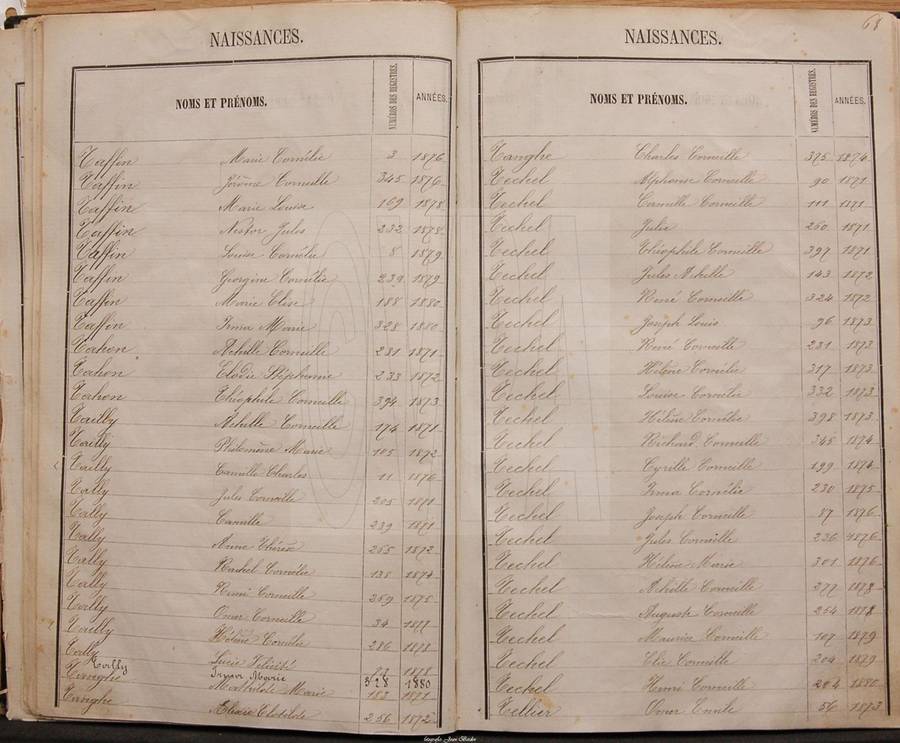 NAISSANCES.
NOMS ET PRÉNOMS. NUMÉROS DES REGISTRES. ANNÉES.
Taffin Marie Cornélie 3 1876
Taffin Jérôme Corneille 345 1876
Taffin Marie Louise 169 1878
Taffin Nestor Jules 232 1878
Taffin Louise Cornélie 8 1879
Taffin Georgine Cornélie 239 1879
Taffin Marie Elise 188 1880
Taffin Irma Marie 328 1880
Tahon Achille Corneille 231 1871
Tahon Elodie Stéphanie 233 1872
Tahon Théophile Corneille 394 1873
Tailly Achille Corneille 174 1871
Tailly Philomène Marie 105 1872
Tailly Camille Charles 11 1876
Tally Jules Corneille 205 1871
Tally Camille 239 1871
Tally Anne Thérèse 265 1872
Tally Rachel Cornélie 138 1874
Tally Remi Corneille 259 1875
Tally Omer Corneille 34 1877
Tailly Hélène Cornélie 286 1878
Tally Lucie Félicité 23 1878
Tailly Irma Marie 328 1880
Tanghe Mathilde Marie 183 1871
Tanghe Elodie Clotilde 256 1872
68
NAISSANCES.
NOMS ET PRÉNOMS. NUMÉROS DES REGISTRES. ANNÉES.
Tanghe Charles Corneille 375 1874
Techel Alphonse Corneille 90 1871
Techel Camille Corneille 111 1871
Techel Julie 260 1871
Techel Théophile Corneille 397 1871
Techel Jules Achille 143 1872
Techel René Corneille 324 1872
Techel Joseph Louis 96 1873
Techel René Corneille 231 1873
Techel Hélène Cornélie 317 1873
Techel Louise Cornélie 332 1873
Techel Hélène Cornélie 398 1873
Techel Richard Corneille 345 1874
Techel Cyrille Corneille 199 1874
Techel Irma Cornélie 230 1875
Techel Joseph Corneille 87 1876
Techel Jules Corneille 236 1876
Techel Hélène Marie 301 1876
Techel Achille Corneille 277 1878
Techel Auguste Corneille 254 1878
Techel Maurice Corneille 107 1879
Techel Elie Corneille 204 1879
Techel Henri Corneille 284 1880
Tellier Omer Emile 56 1873